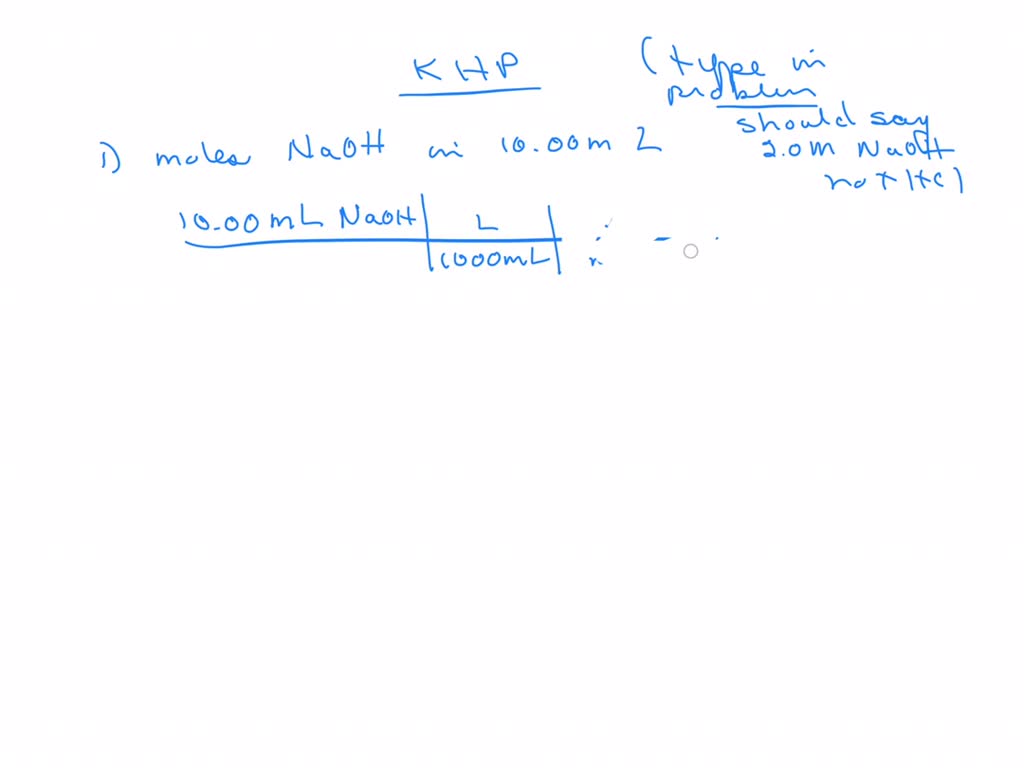 KHP
(type in
problem
should say
2.0m NaOH
not HCl)
1) moles NaOH in 10.00mL
10.00mL NaOH | L
1000mL